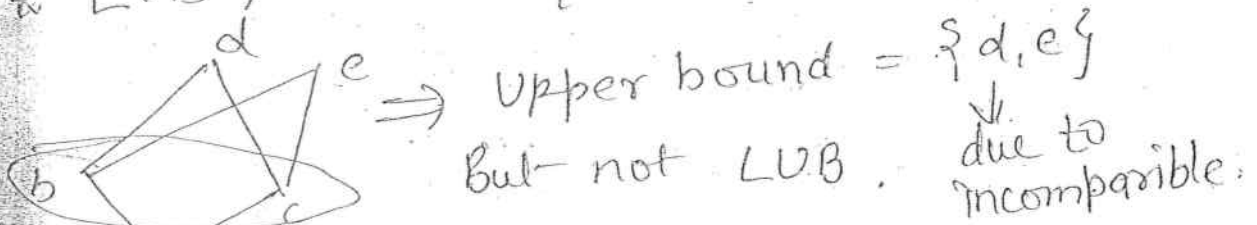 d
e
b
c
⇒ Upper bound = {d, e}
↓
But not LUB. due to
incomparible.